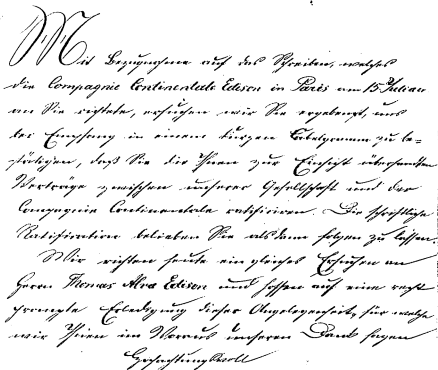 Mit Bezugnahme auf das Schreiben, welches
die Compagnie Continentale Edison in Paris am 15 Juli an
an Sie richtete, ersuchen wir Sie ergebenst, uns
bei Empfang in einem kurzen Kabelgramm zu be-
stätigen, daß Sie die Ihnen zur Einsicht übersandten
Verträge zwischen unserer Gesellschaft und der
Compagnie Continentale ratificiren. Die schriftliche
Ratification belieben Sie alsdann folgen zu lassen.
Wir richten heute ein gleiches Ersuchen an
Herrn Thomas Alva Edison und hoffen auf eine recht
prompte Erledigung dieser Angelegenheit, für welche
wir Ihnen im Voraus unseren Dank sagen
Hochachtungsvoll